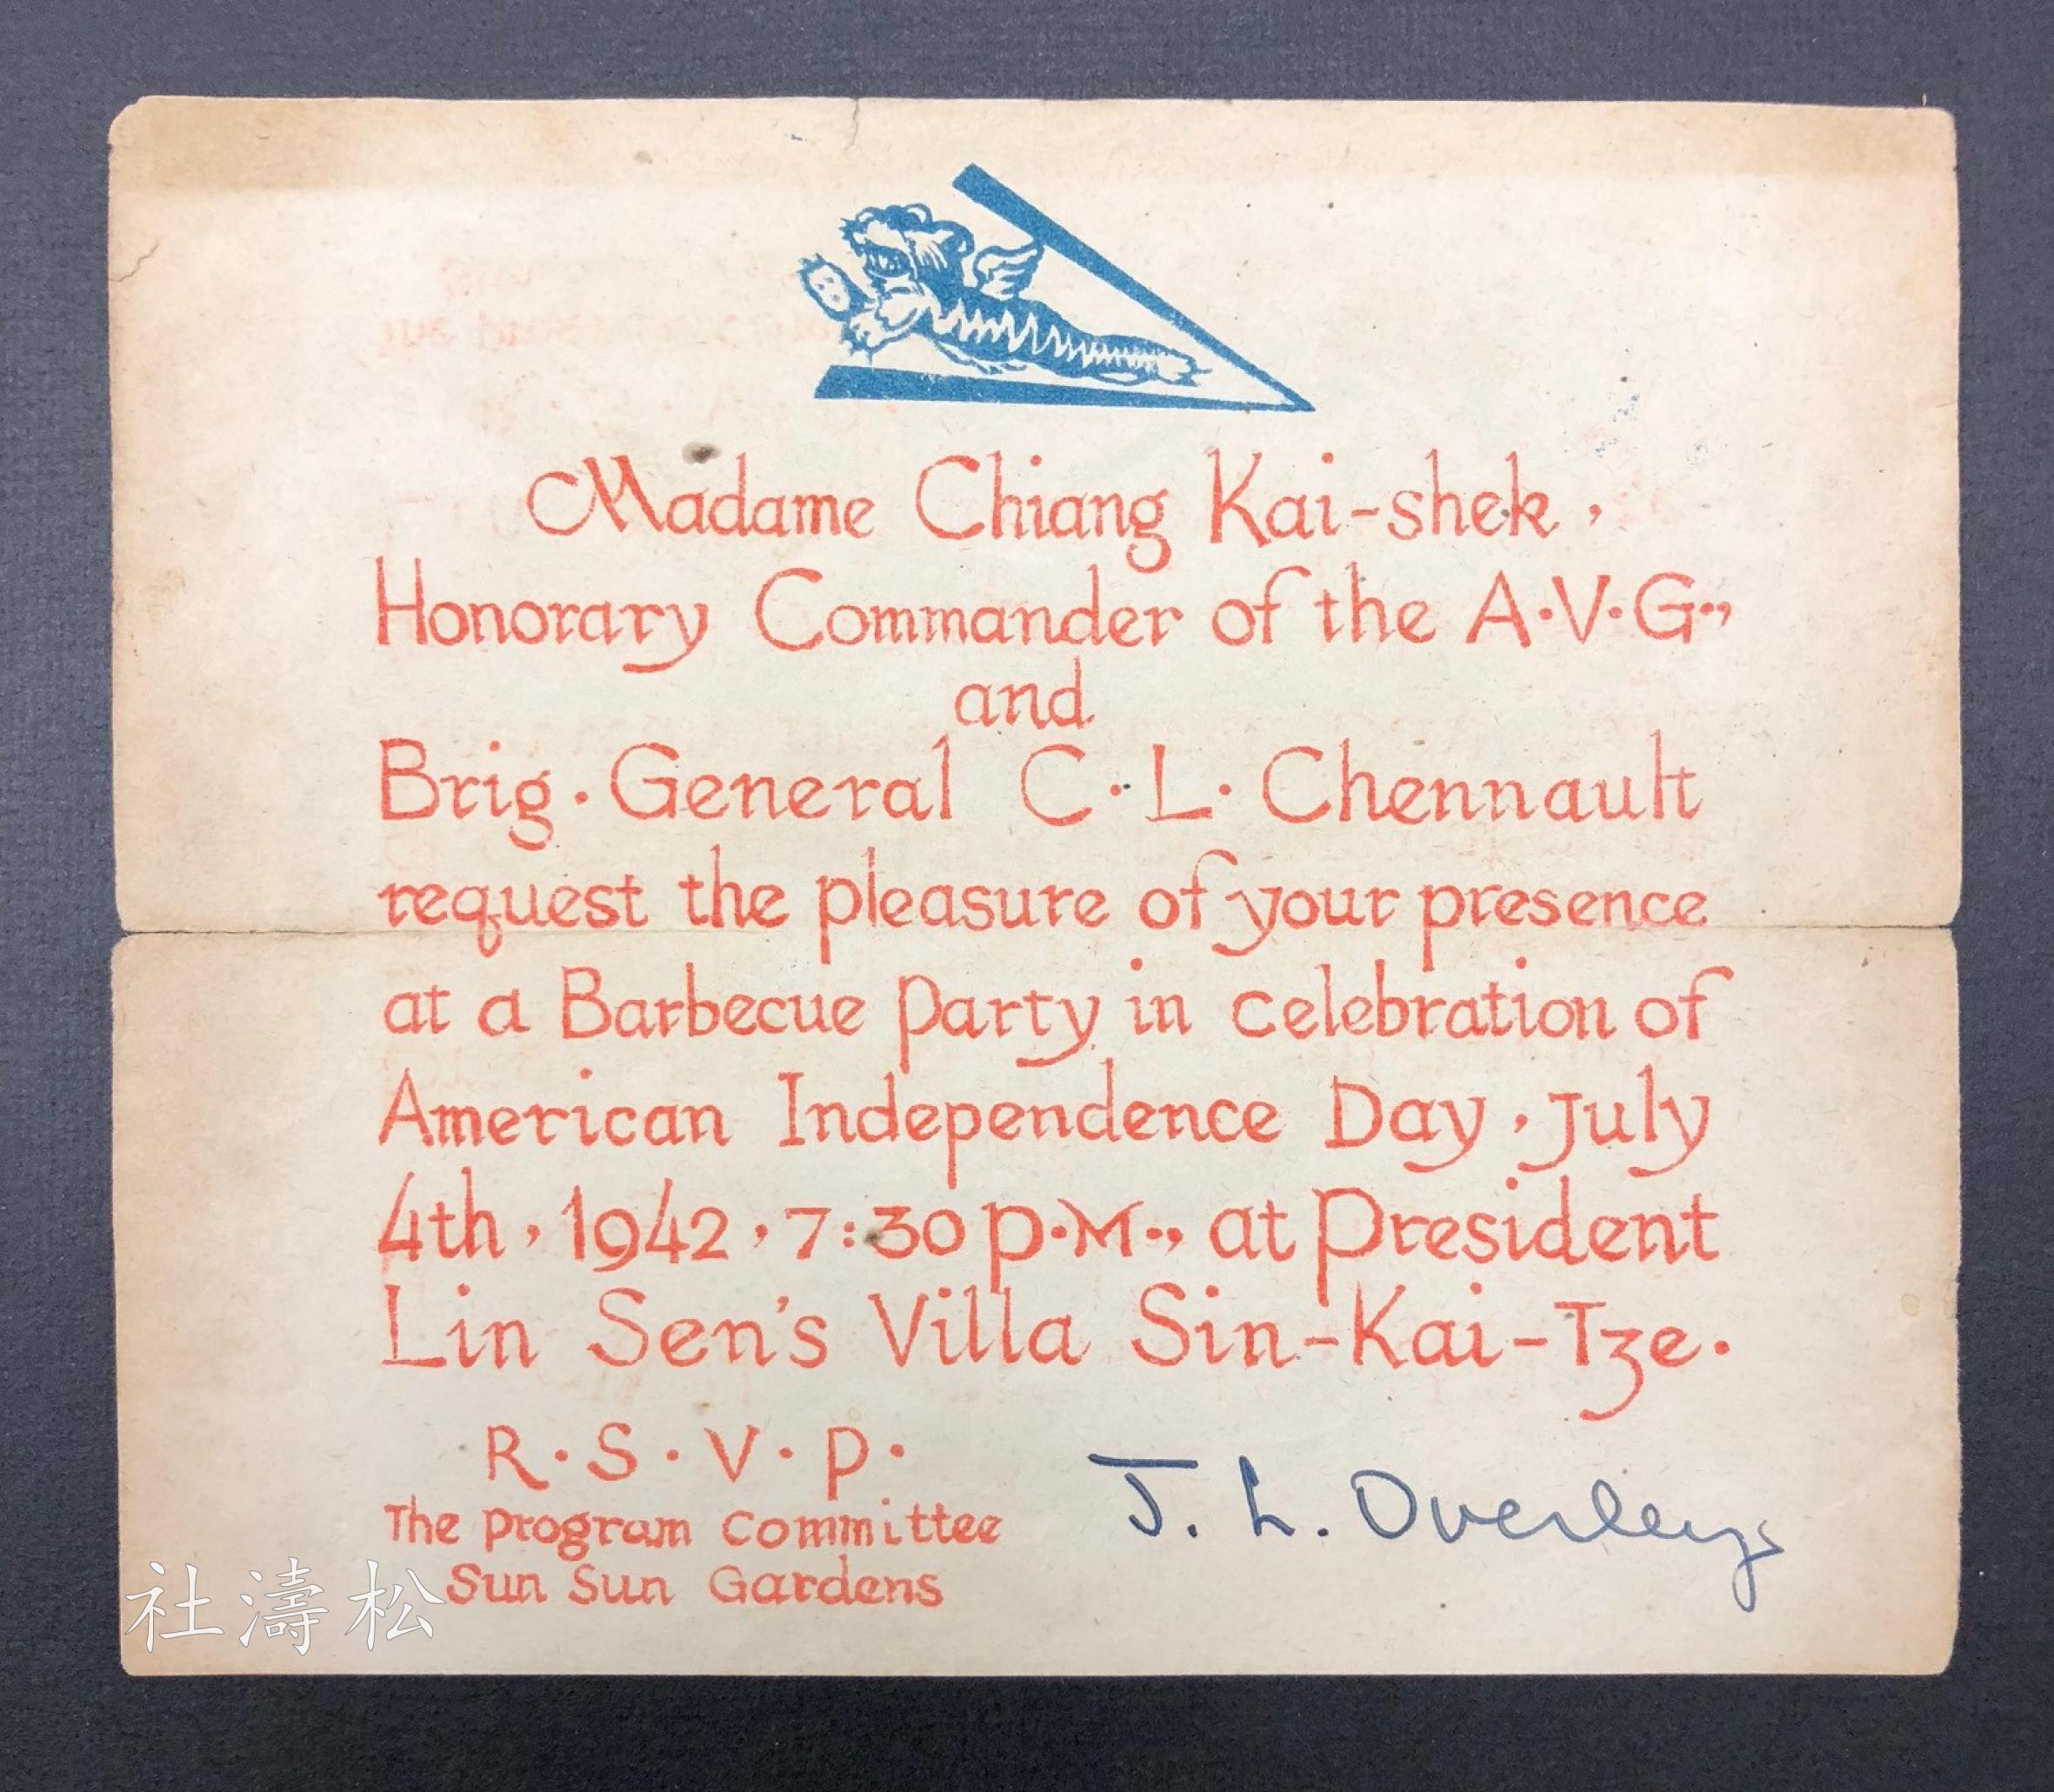 Madame Chiang Kai-shek,
Honorary Commander of the A.V.G.,
and
Brig. General C. L. Chennault
request the pleasure of your presence
at a Barbecue Party in celebration of
American Independence Day, July
4th, 1942, 7:30 P.M., at President
Lin Sen's Villa Sin-Kai-Tze.
R. S. V. P.
The Program Committee
Sun Sun Gardens
J. L. Overley
社濤松